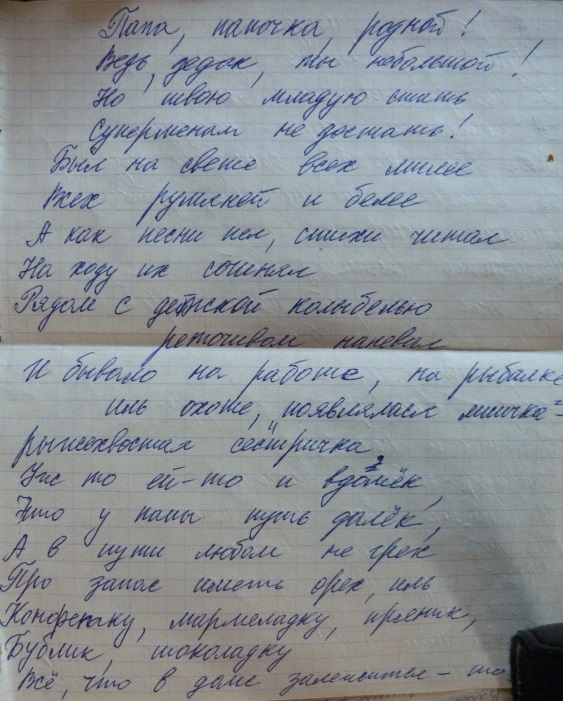 Папа, папочка, родной!
Ведь, дедок, ты небольшой!
Но твою младую стать
Суперменам не достать!
Был на свете всех милее
Всех румяней и белее
А как песни пел, стихи читал
На ходу их сочинял
Рядом с детской колыбелью
речитивом напевал
И бывало на работе, на рыбалке
иль охоте, появлялась лисичка-
рыжехвостая сестричка
что у папы путь далёк,
А в пути любом не грех
Про запас иметь орех, иль
Конфетку, мармеладку, пряник,
Бублик, шоколадку
Всё, что в доме залежится - то